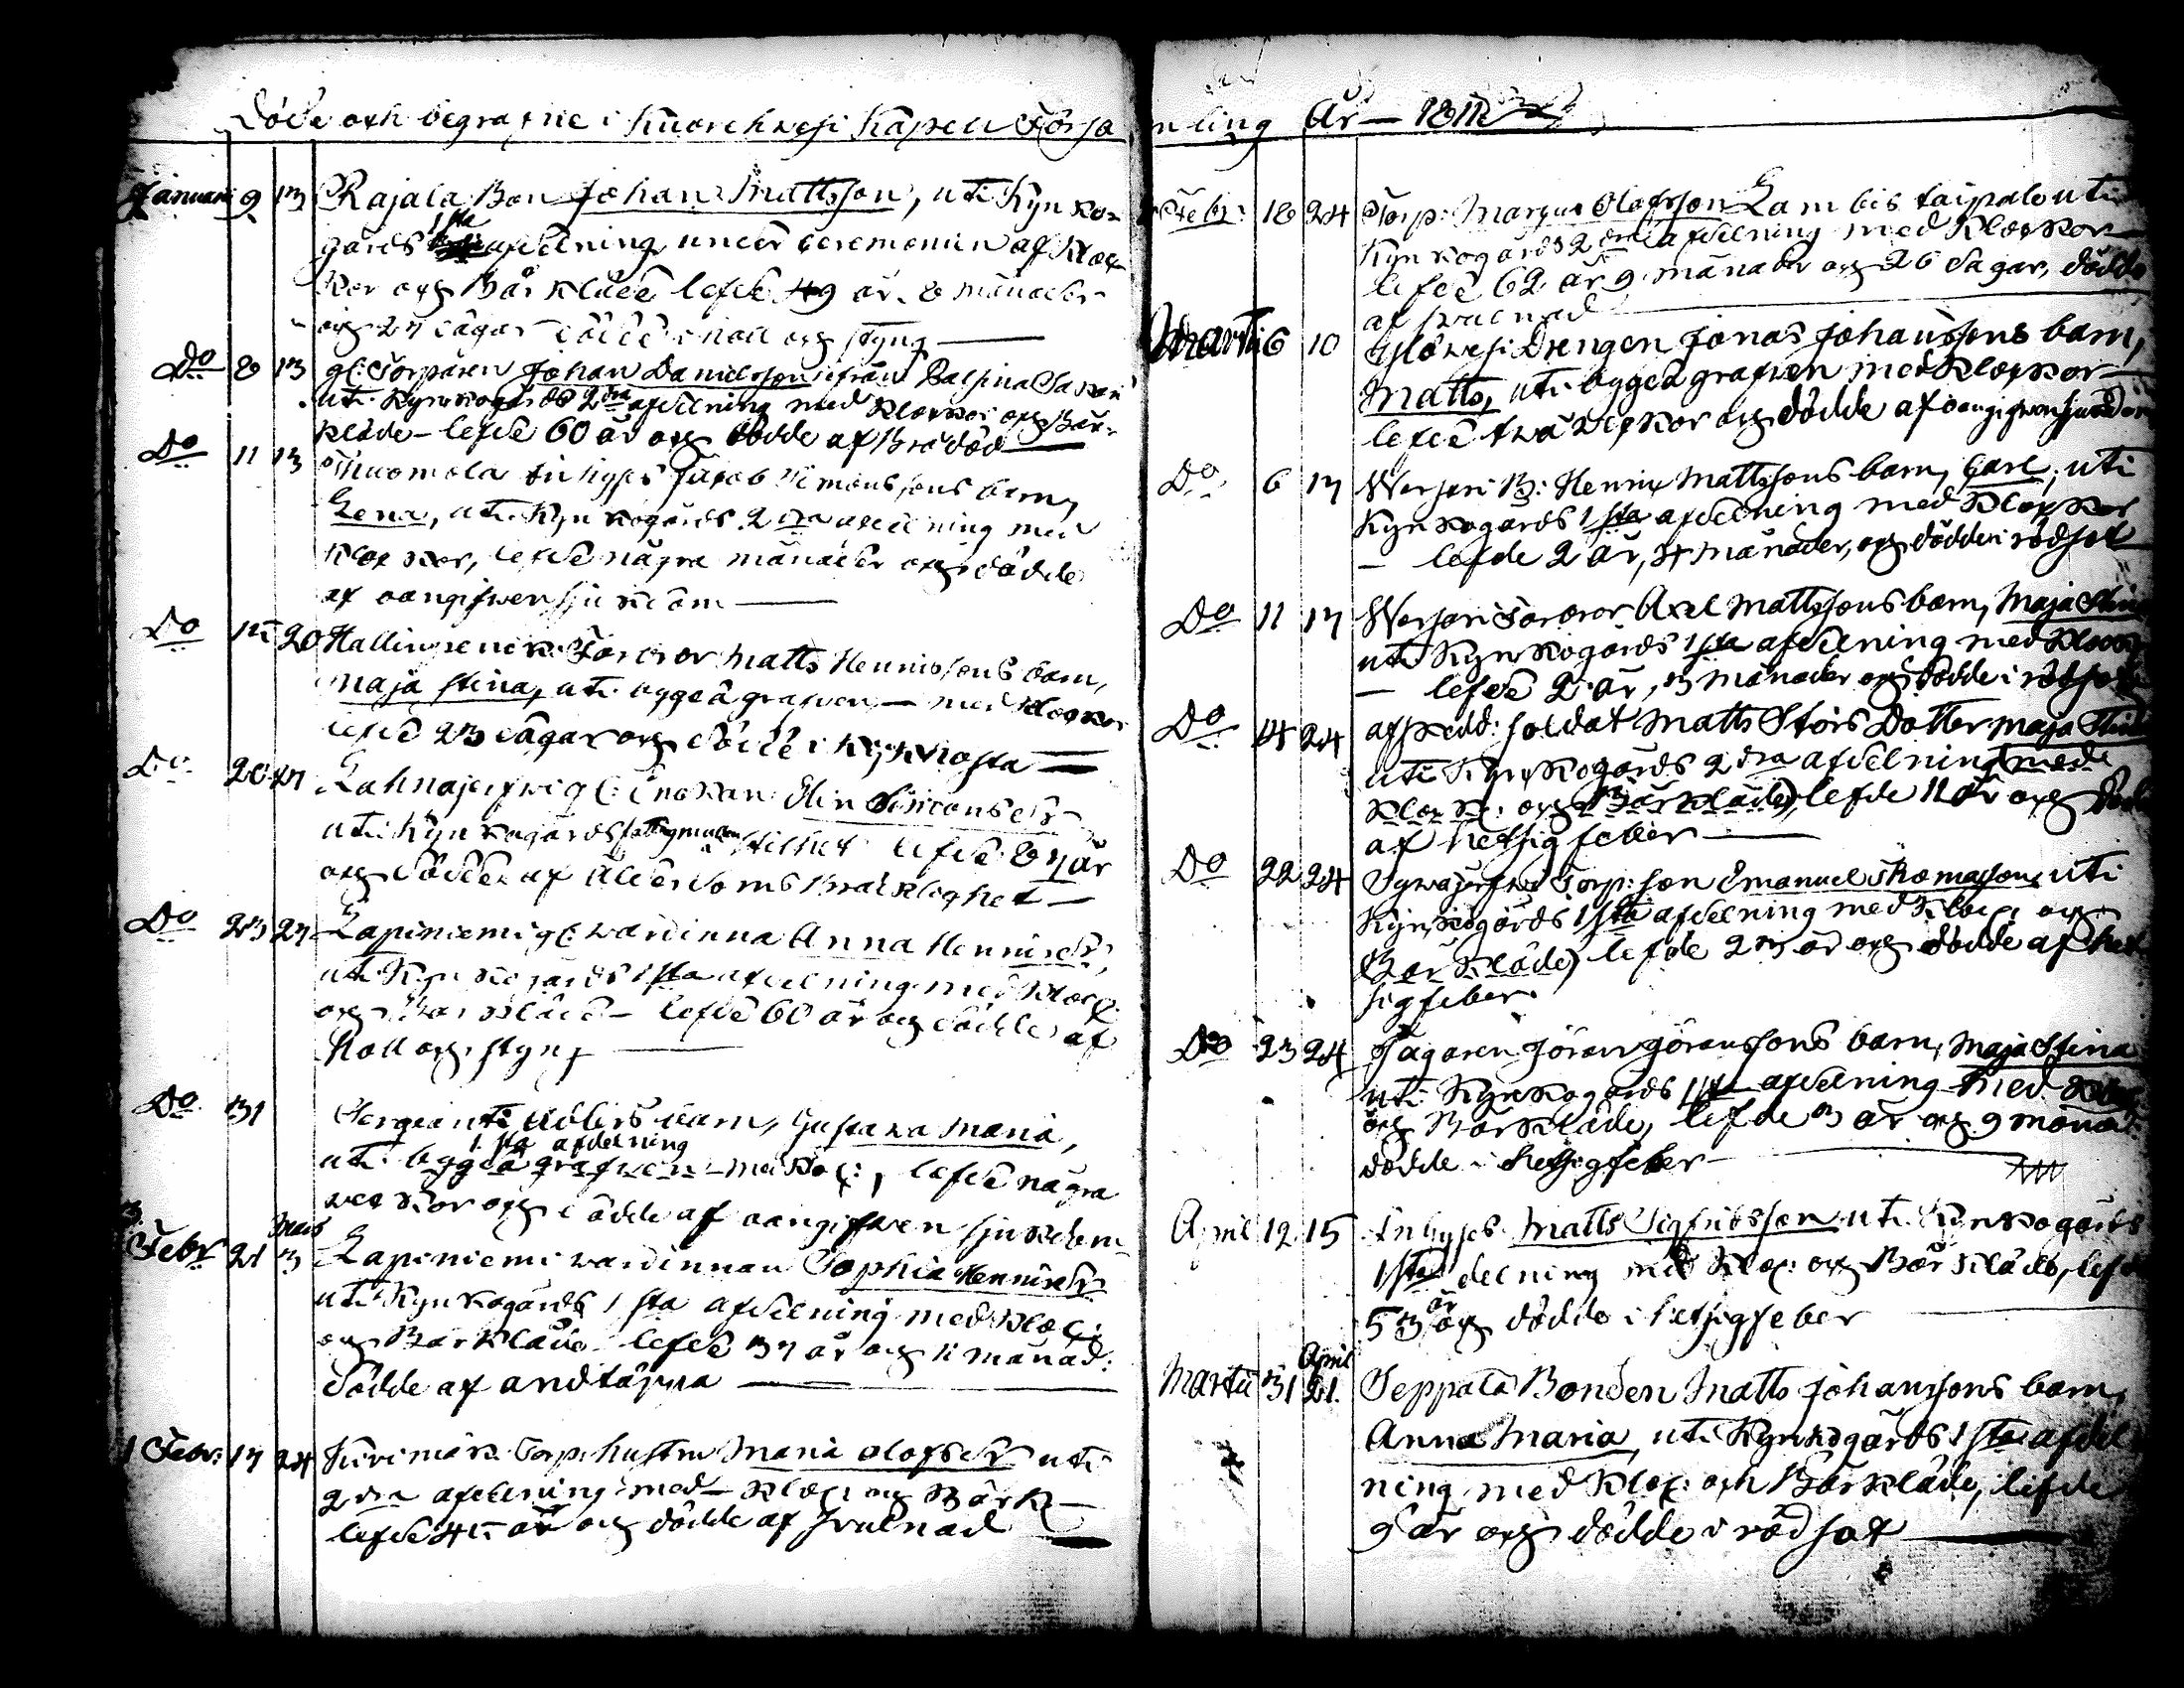 Döde och begrafne i Kuorehwesi Kapell Försa
Januari 9 13 Rajala Bon Johan Mattsson, uti Kyrko-
gårds 1sta afdelning under ceremonien af Kloc-
kor och Bårkläde lefde 49 år 8 månader
och 27 dagar dödde i håll och styng
Do 8 13 gl: Torparen Johan Danielsson ifrån
uti Kyrkogårds 2dra afdelning med klockor och Bår-
kläde - lefde 60 år och dödde af Brådöd
Do 11 13 Thuomola inhyses Jacob Simonssons barn,
Lena, uti Kyrkogårds 2dra afdelning med
Klockor, lefde några månader och dödde
af oangifwen sjukdom
Do 20 Matts Henricssons barn,
Maja Stina, uti bygda grafwen - med klockor
lefde 23 dagar och dödde i kikhosta
Do 20 Lahnajerfwi gl: Enkan Elin Simonsdr
uti Kyrkogårds stillhet lefde 87 år
och dödde af Ålderdoms Bräcklighet
Do 23 27 Lapiniemi gl: wärdinna Anna Henricsdr,
uti Kyrkogårds 1sta afdelning med Kloc:
och Bårkläde - lefde 60 år och dödde af
håll och styng
Do 31 Sergeanti barn, Gustawa Maria,
1sta afdelning
uti bygda grafwen - lefde några
weckor och dödde af oangifwen sjukdom
Mars
Febr 21 3 Lapiniemi wärdinnan Sophia Henricsdr
uti Kyrkogårds 1sta afdelning med Kloc:
och Bårkläde - lefde 37 år och 11 månad:
dödde af andtäppa
Febr: 17 24 Torp: hustru Maria Olofsdr uti
2dra afdelning med Kloc: och Bårk-
lefde 45 år och dödde af Swulnad
mling År 1812
Febr: 18 24 Torp: Margus Olofsson Lambistaipale uti
Kyrkogårds 2dra afdelning med Klockor
lefde 62 år 9 månader och 26 dagar, dödde
af swulnad
Martii 6 10 Drengen Jonas Johanssons barn,
Matts, uti bygda grafwen med Klockor
lefde twå weckor och dödde af oangifwen
Do 6 17 Warsari B: Henric Mattssons barn, Carl, uti
Kyrkogårds 1sta afdelning med Klockor
- lefde 2 år, 4 månader, och dödde i rödsot
Do 11 17 Warsari Axel Mattssons barn, Maja Stina
uti Kyrkogårds 1sta afdelning med Klockor
- lefde 2 år, 3 månader och dödde i rödsot
Do 14 24 afskedd: soldat Matts Störs Dotter Maja Stina
uti Kyrkogårds 2dra afdelning med
Klock: och Bårkläde, lefde 11 år och
af hetsig feber
Do 22 24 Torp: son Emanuel Thomasson uti
Kyrkogårds 1sta afdelning med Kloc: och
Bårkläde) lefde 23 år och dödde af het-
sig feber
Do 23 24 Jägaren Jöran Göranssons barn, Maja Stina
uti Kyrkogårds 1sta afdelning med
och Bårkläde, lefde 3 år och 9 månad:
dödde i hetsig feber
April 12 15 Inhyses Matts Sigfridsson uti Kyrkogårds
1sta delning med Kloc: och Bårkläde, lefde
53 år och dödde i hetsig feber
April
Martii 31 21. Seppälä Bonden Matts Johanssons barn,
Anna Maria, uti Kyrkogårds 1sta afdel-
ning med Kloc: och Bårkläde, lefde
9 år och dödde i rödsot